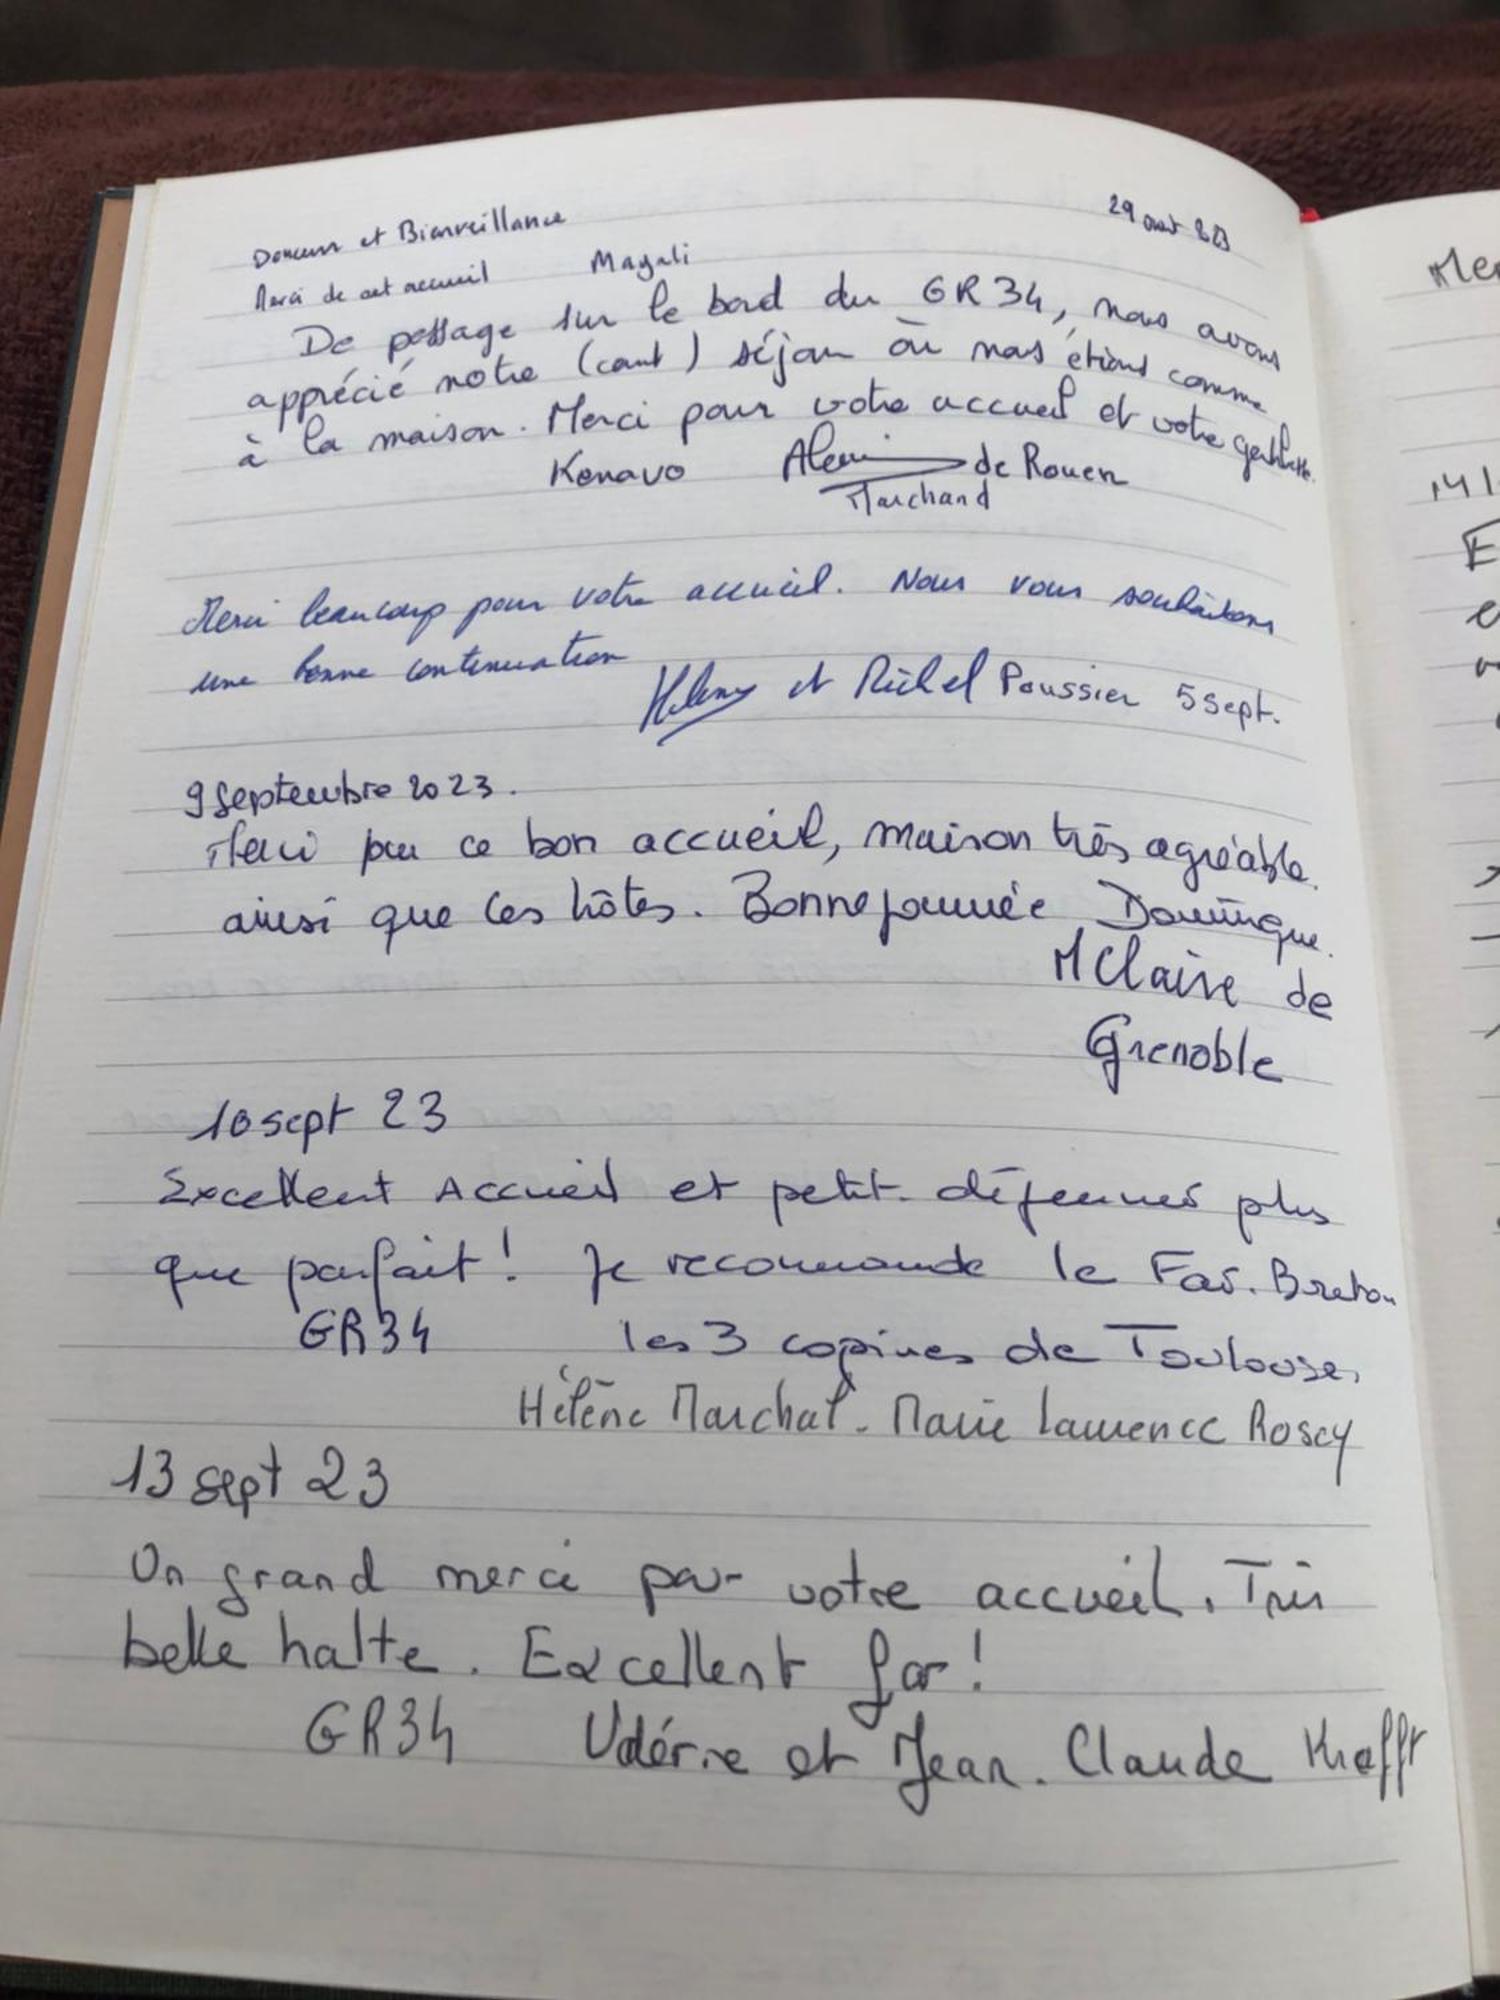 29 août 23
Douceur et Bienveillance
Merci de cet accueil Magali
De passage sur le bord du GR34, nous avons
apprécié notre (court) séjour où nous étions comme
à la maison. Merci pour votre accueil et votre gentillesse.
Kenavo Alain de Rouen
Marchand
Merci beaucoup pour votre accueil. Nous vous souhaitons
une bonne continuation
et Michel Poussier 5 sept.
9 Septembre 2023.
Merci pour ce bon accueil, maison très agréable
ainsi que les hôtes. Bonne journée Dominique.
M Claire de
Grenoble
10 sept 23
Excellent Accueil et petit-déjeuner plus
que parfait! Je recommande le Far. Breton
GR34 les 3 copines de Toulouse,
Hélène Marchal. Marie Laurence Roscy
13 sept 23
Un grand merci pour votre accueil. Très
belle halte. Excellent far!
GR34 Valérie et Jean. Claude Krafft
Mer